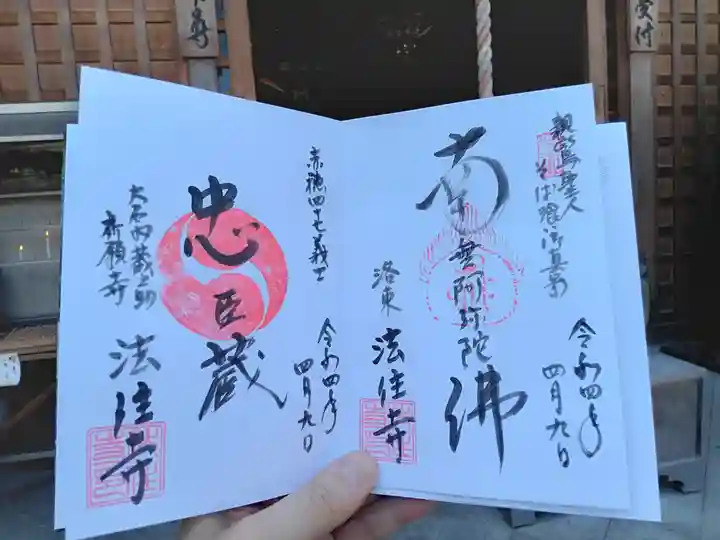 親鸞聖人
そば喰御真影
南無阿弥陀佛
洛東
法住寺
令和四年
四月九日
赤穂四十七義士
忠臣蔵
大石内蔵之助
祈願寺
法住寺
令和四年
四月九日
受付